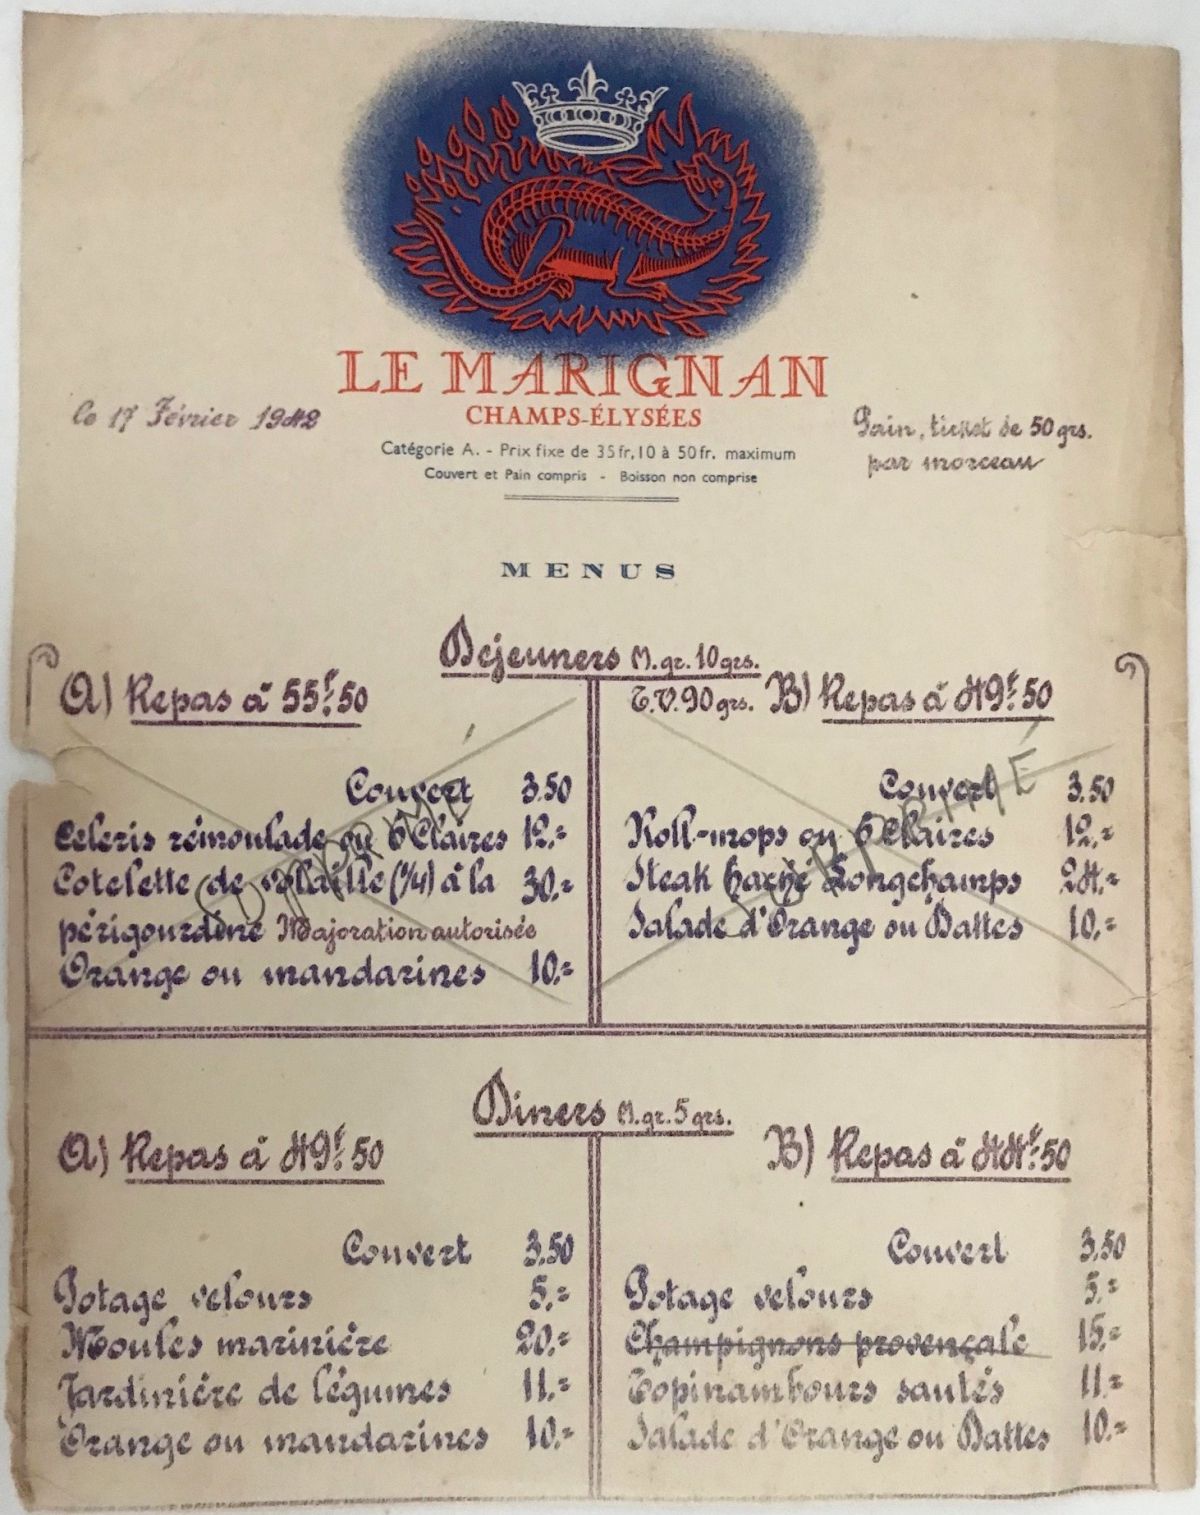 LE MARIGNAN
CHAMPS-ÉLYSÉES
le 17 Février 1942
Pain, ticket de 50 grs.
par morceau
Catégorie A. - Prix fixe de 35fr,10 à 50fr. maximum
Couvert et Pain compris - Boisson non comprise
MENUS
Déjeuners M.gr. 10grs.
A) Repas à 55f.50
T.V. 90 grs.
B) Repas à 49f.50
Couvert 3.50
Céleris rémoulade ou 6 Claires 12.=
Cotelette de volaille (1/4) à la 30.=
périgourdine Majoration autorisée
Orange ou mandarines 10.=
SUPPRIMÉ
Couvert 3.50
Roll-mops ou 6 Claires 12.=
Steak haché Longchamps 24.=
Salade d'Orange ou Dattes 10.=
SUPPRIMÉ
Diners M.gr. 5 grs.
A) Repas à 49f.50
Couvert 3.50
Potage velours 5.=
Moules marinière 20.=
Jardinière de légumes 11.=
Orange ou mandarines 10.=
B) Repas à 44f.50
Couvert 3.50
Potage velours 5.=
Champignons provençale 15.=
Topinambours sautés 11.=
Salade d'Orange ou Dattes 10.=